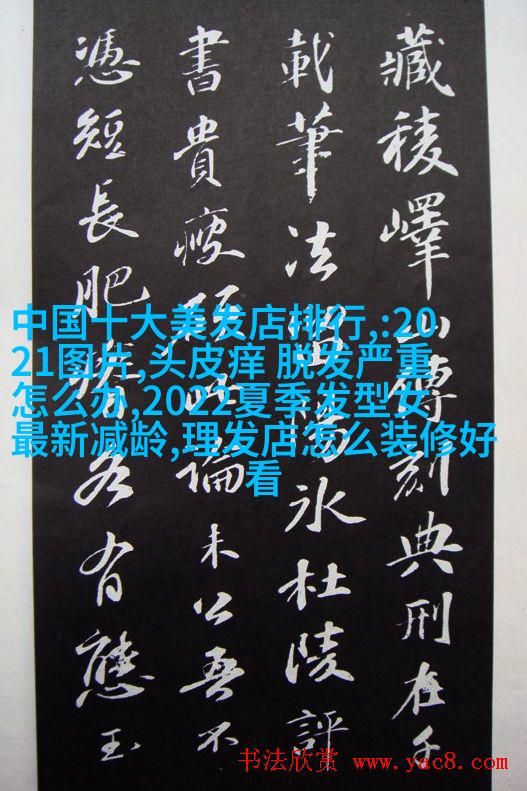 藏稜嶧山傳刻典刑在千
載筆法留陽氷杜陵評
書貴瘦硬此論未公吾不
憑短長肥瘠各有態玉
中国十大美发店排行,:20
21图片,头皮痒 脱发严重
怎么办,2022夏季发型女
最新减龄,理发店怎么装修好
看
书法欣赏 http://www.yac8.com